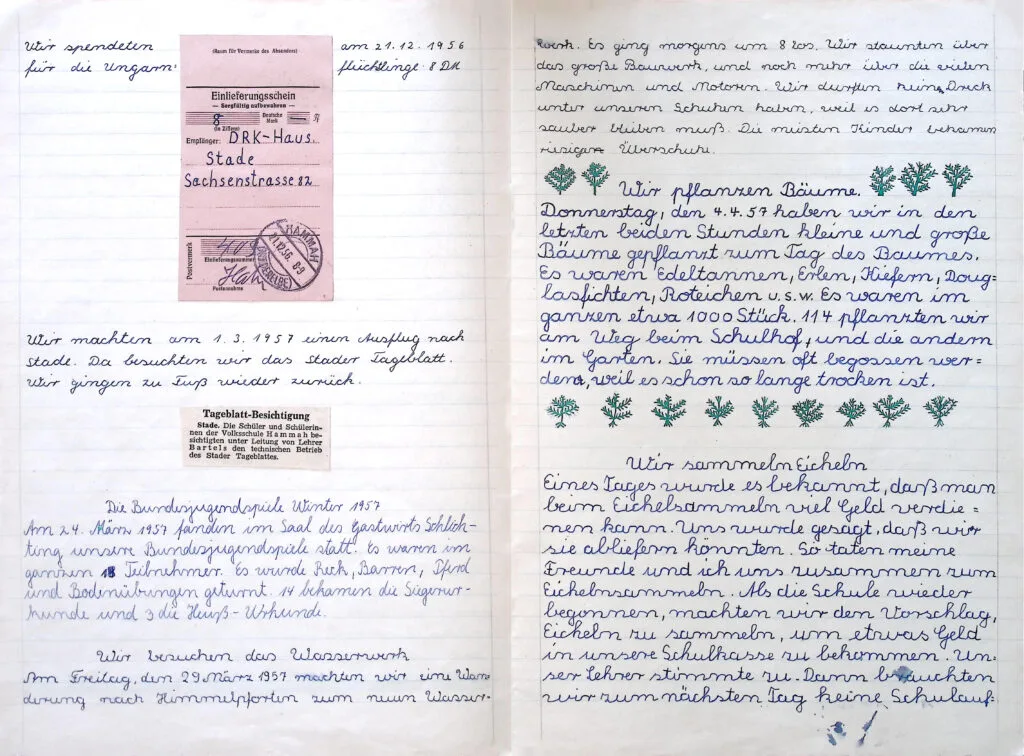 Wir spendeten am 21.12.1956
für die Ungarn- flüchtlinge 8 DM
(Raum für Vermerke des Absenders)
Einlieferungsschein
— Sorgfältig aufbewahren —
8 Deutsche Mark — Pf
(in Ziffern)
Empfänger: DRK-Haus.
Stade
Sachsenstrasse 82
Postvermerk
409
Einlieferungsnummer
Postannahme
HAMMAH
21.12.56. 8-9
Wir machten am 1.3.1957 einen Ausflug nach
Stade. Da besuchten wir das Stader Tageblatt.
Wir gingen zu Fuß wieder zurück.
Tageblatt-Besichtigung
Stade. Die Schüler und Schülerin-
nen der Volksschule Hammah be-
sichtigten unter Leitung von Lehrer
Bartels den technischen Betrieb
des Stader Tageblattes.
Die Bundesjugendspiele Winter 1957
Am 24. März 1957 fanden im Saal des Gastwirts Schlich-
ting unsere Bundesjugendspiele statt. Es waren im
ganzen 18 Teilnehmer. Es wurde Reck, Barren, Pferd
und Bodenübungen geturnt. 14 bekamen die Siegerur-
kunde und 3 die Heuß-Urkunde.
Wir besuchen das Wasserwerk
Am Freitag, den 29 März 1957 machten wir eine Wan-
derung nach Himmelpforten zum neun Wasser-
werk. Es ging morgens um 8 los. Wir staunten über
das große Bauwerk, und noch mehr über die vielen
Maschinen und Motoren. Wir durften keine Dreck
unter unseren Schuhen haben, weil es dort sehr
sauber bleiben muß. Die meisten Kinder bekamen
riesigen Überschuhe.
Wir pflanzen Bäume.
Donnerstag, den 4.4.57 haben wir in den
letzten beiden Stunden kleine und große
Bäume gepflanzt zum Tag des Baumes.
Es waren Edeltannen, Erlen, Kiefern, Doug-
lasfichten, Roteichen u.s.w. Es waren im
ganzen etwa 1000 Stück. 114 pflanzten wir
am Weg beim Schulhof, und die andern
im Garten. Sie müssen oft begossen wer=
den, weil es schon so lange trocken ist.
Wir sammeln Eicheln
Eines Tages wurde es bekannt, daß man
beim Eichelsammeln viel Geld verdie=
nen kann. Uns wurde gesagt, daß wir
sie abliefern könnten. So taten meine
Freunde und ich uns zusammen zum
Eichelnsammeln. Als die Schule wieder
begonnen, machten wir den Vorschlag,
Eicheln zu sammeln, um etwas Geld
in unsere Schulkasse zu bekommen. Un-
ser Lehrer stimmte zu. Dann brauchten
wir zum nächsten Tag keine Schulauf=